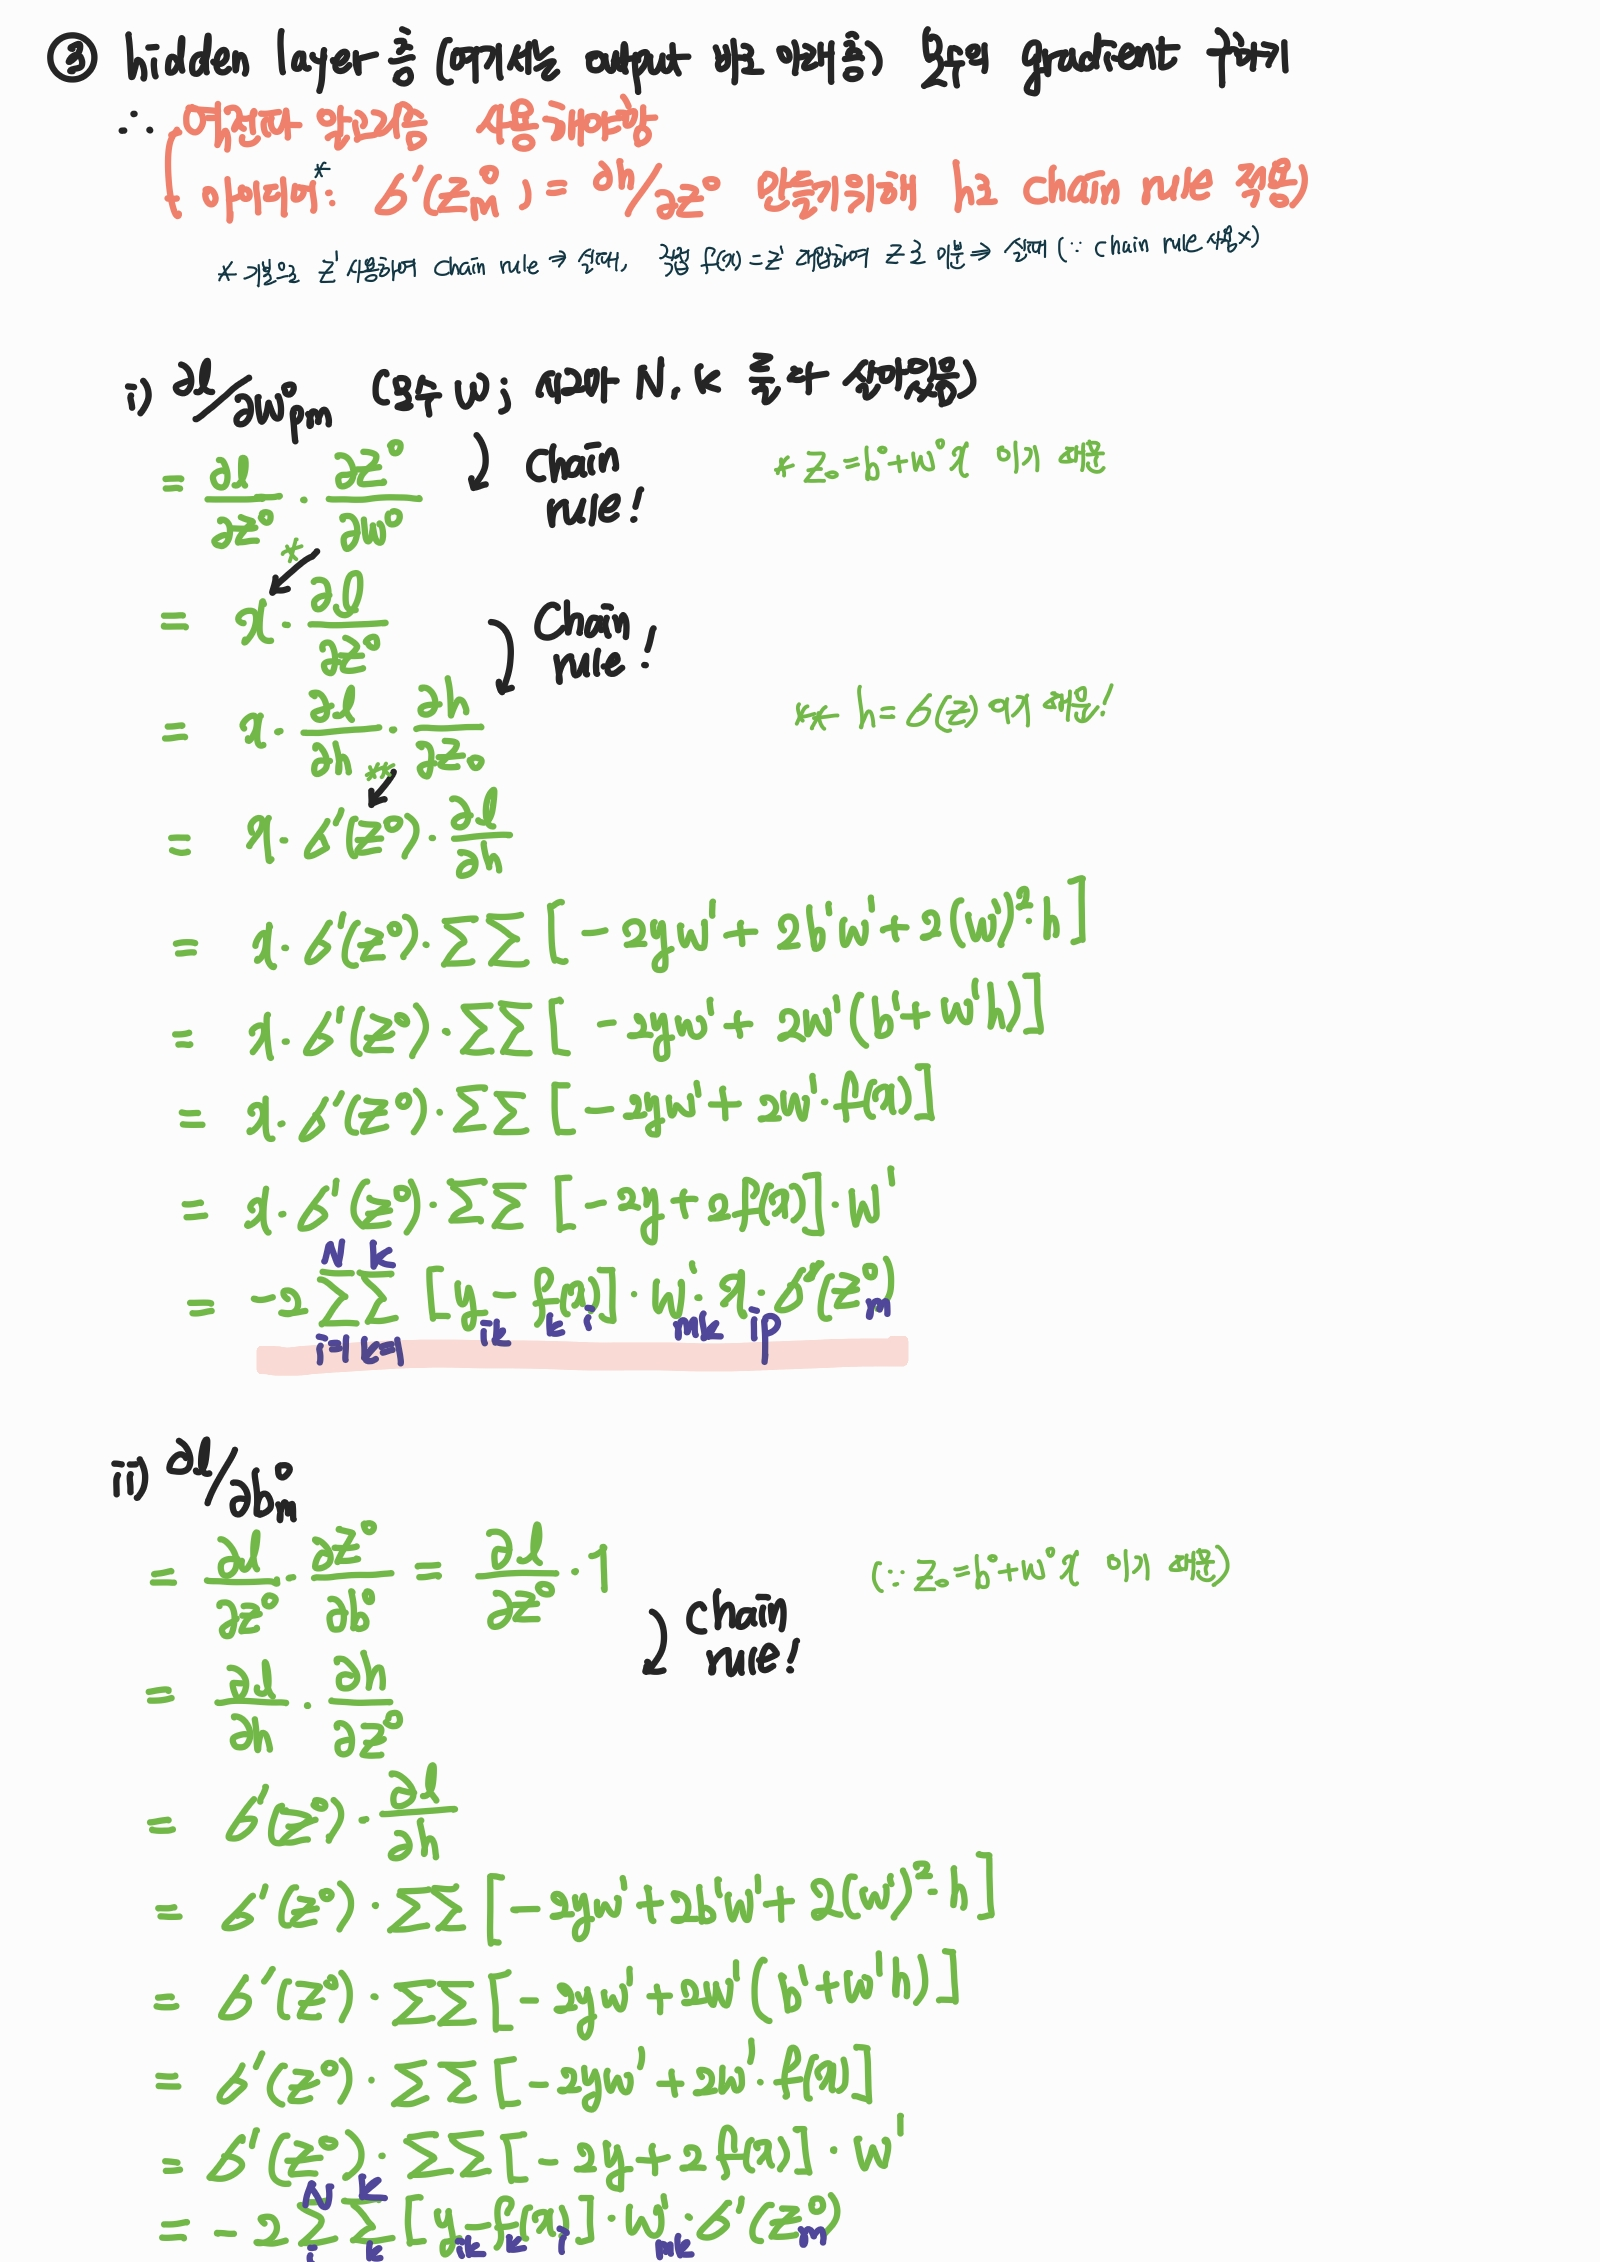 ③ hidden layer 층 (여기서는 output 바로 아래 층) 모수의 gradient 구하기
∴ 역전파 알고리즘 사용해야함
아이디어*: σ'(z⁰ₘ) = ∂h/∂z⁰ 만들기위해 h로 chain rule 적용)
* 기불으로 z' 사용하여 chain rule → 실패, 직접 f(x) = z' 대입하여 z로 미분 ⇒ 실패 (∵ chain rule 사용x)
i) ∂l/∂w⁰pm (모수 w; 시그마 N, K 둘 다 살아있음)
= ∂l/∂z⁰ · ∂z⁰/∂w⁰
Chain rule!
* z₀ = b⁰+w⁰x 이기 때문
*
= x · ∂l/∂z⁰
Chain rule!
= x · ∂l/∂h · ∂h/∂z₀
** h = σ(z) 이기 때문!
**
= x · σ'(z⁰) · ∂l/∂h
= x · σ'(z⁰) · ΣΣ [ - 2yw' + 2b'w' + 2(w')²·h ]
= x · σ'(z⁰) · ΣΣ [ - 2yw' + 2w'(b'+w'h) ]
= x · σ'(z⁰) · ΣΣ [ - 2yw' + 2w'·f(x) ]
= x · σ'(z⁰) · ΣΣ [ - 2y + 2f(x) ] · w'
= -2 Σᴺᵢ₌₁ Σᴷₖ₌₁ [ yᵢₖ - fₖ(xᵢ) ] · w'ₘₖ · xᵢₚ · σ'(z⁰ₘ)
ii) ∂l/∂b⁰ₘ
= ∂l/∂z⁰ · ∂z⁰/∂b⁰ = ∂l/∂z⁰ · 1
(∵ z₀ = b⁰+w⁰x 이기 때문)
Chain rule!
= ∂l/∂h · ∂h/∂z⁰
= σ'(z⁰) · ∂l/∂h
= σ'(z⁰) · ΣΣ [ - 2yw' + 2b'w' + 2(w')²·h ]
= σ'(z⁰) · ΣΣ [ - 2yw' + 2w'(b'+w'h) ]
= σ'(z⁰) · ΣΣ [ - 2yw' + 2w'·f(x) ]
= σ'(z⁰) · ΣΣ [ - 2y + 2f(x) ] · w'
= -2 Σᴺᵢ Σᴷₖ [ yᵢₖ - fₖ(xᵢ) ] · w'ₘₖ · σ'(z⁰ₘ)